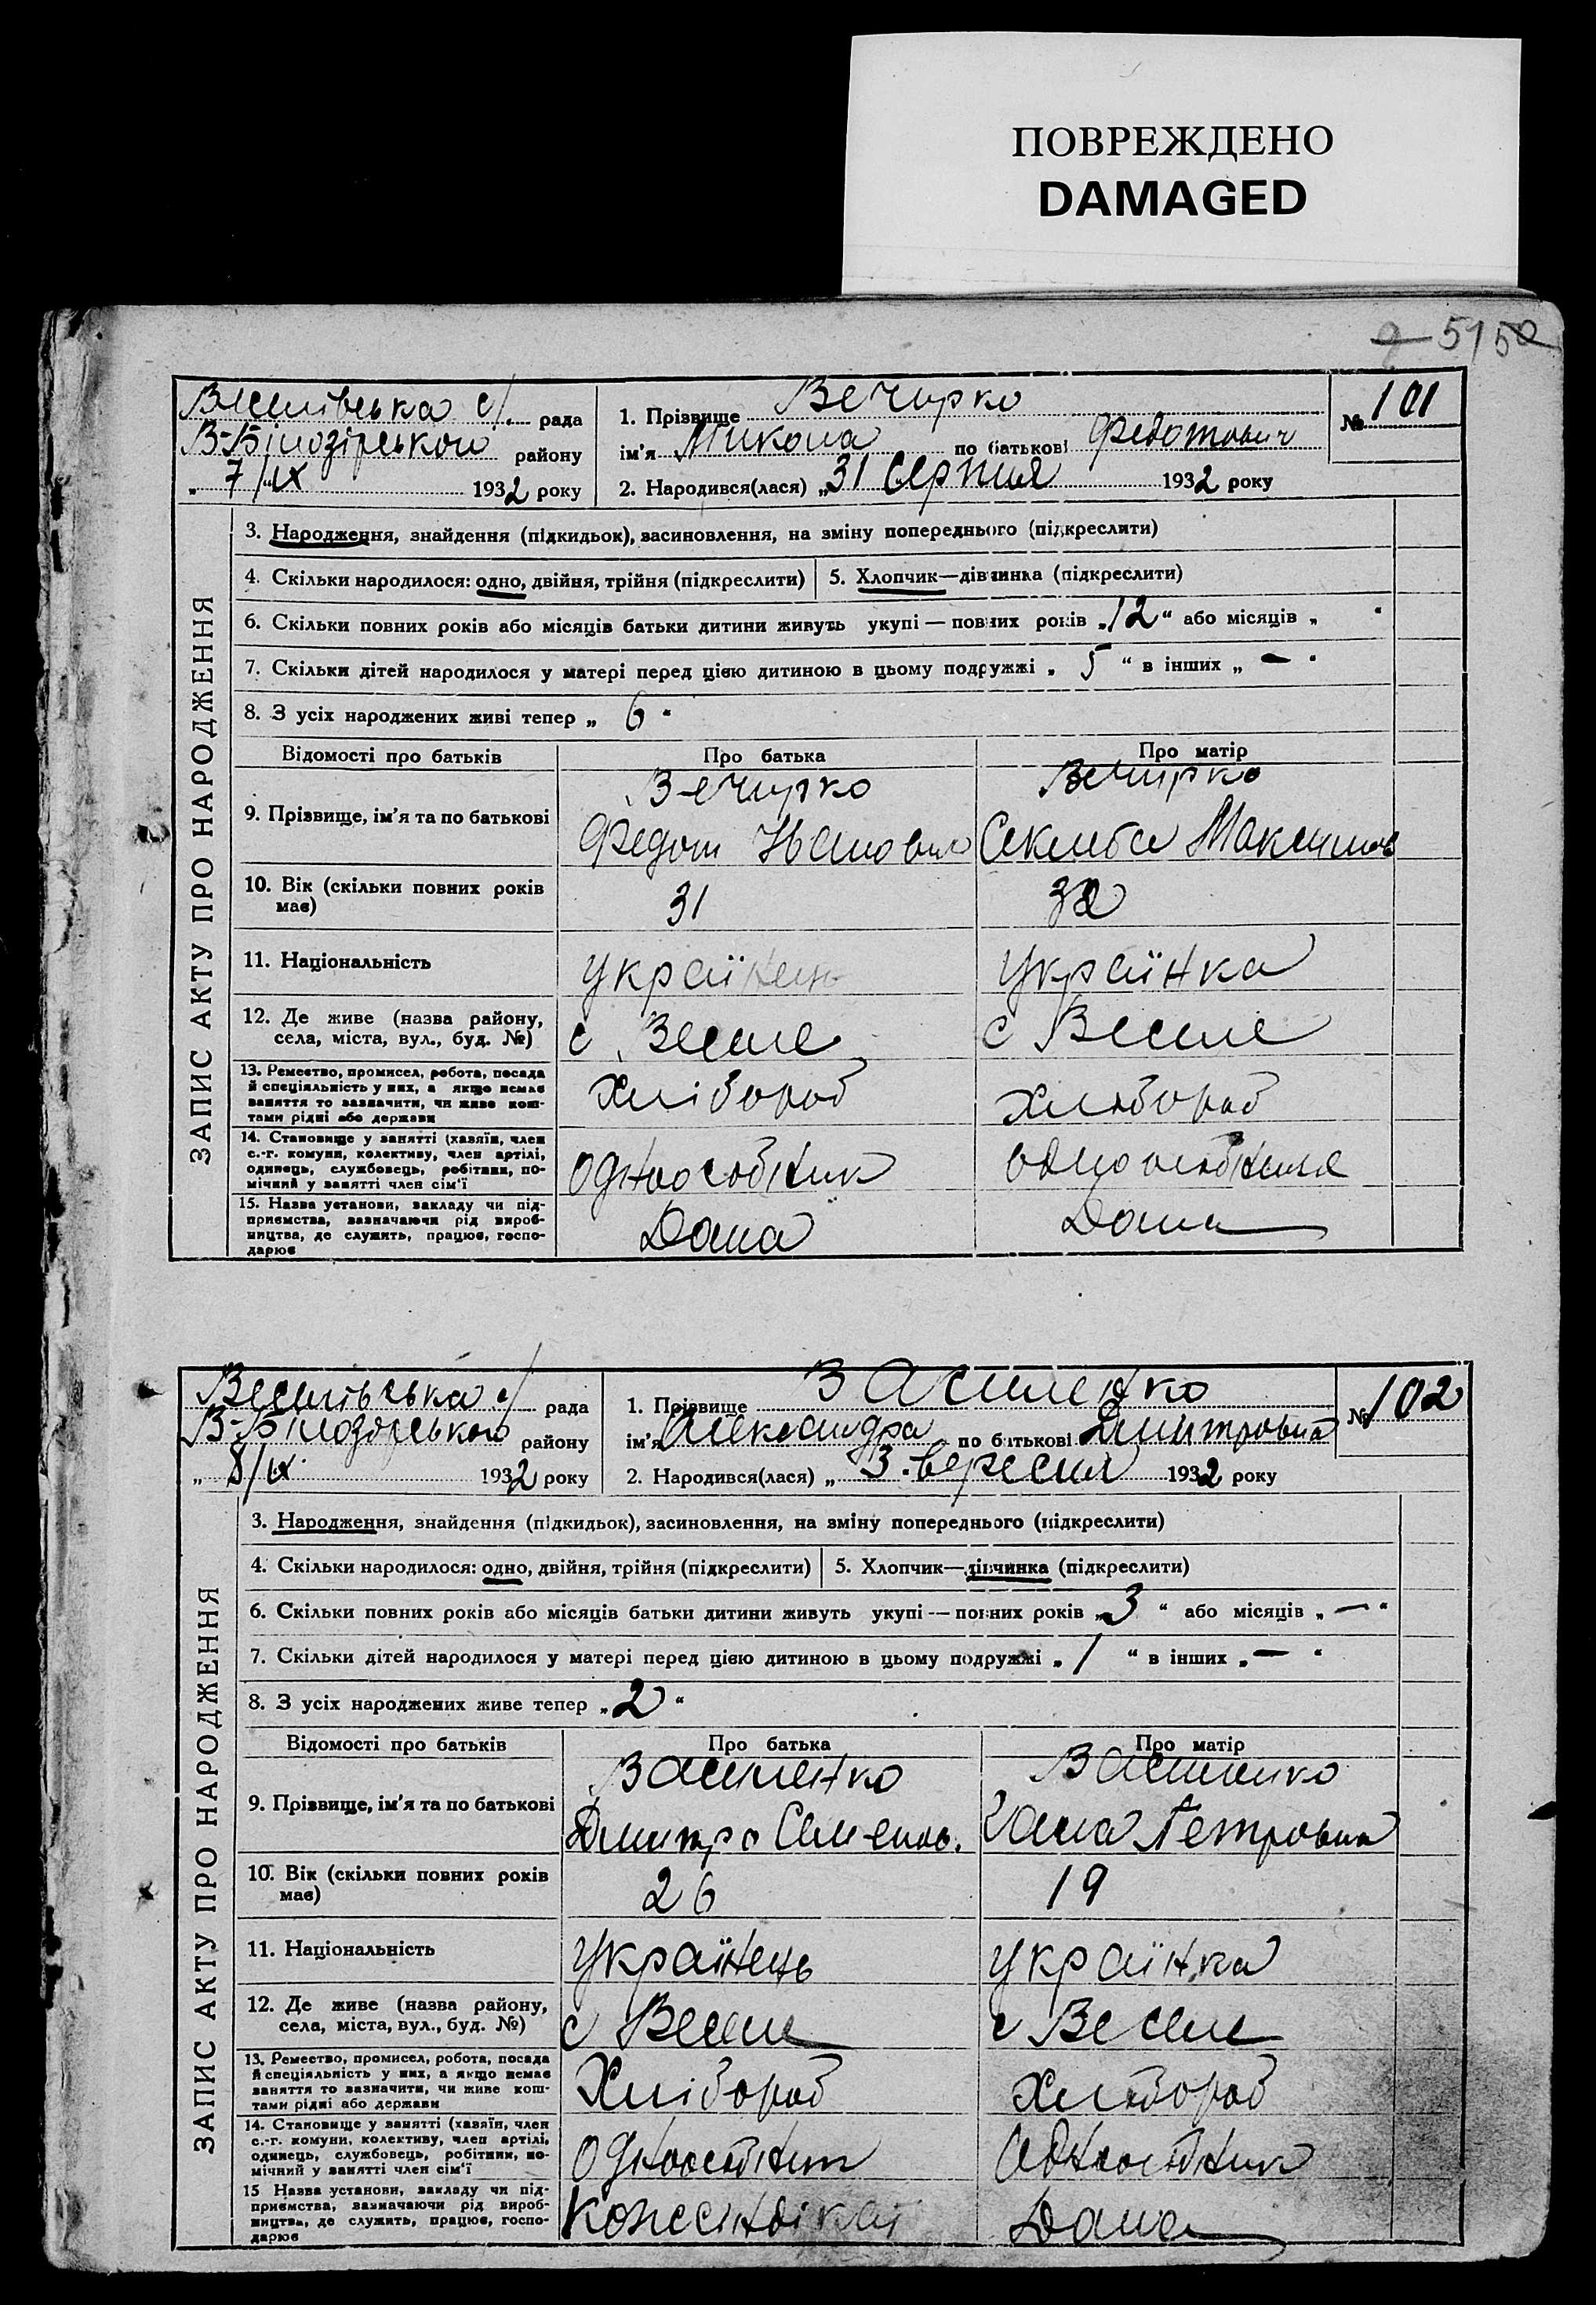 ПОВРЕЖДЕНО
DAMAGED
5150
Веселівська с/. рада
В-Білозірського району
„ 7/IX 1932 року
1. Прізвище Вечирко
ім'я Микола по батькові Федотович
2. Народився(лася) „31 Серпня 1932 року
№ 101
ЗАПИС АКТУ ПРО НАРОДЖЕННЯ
3. Народження, знайдення (підкидьок), засиновлення, на зміну попереднього (підкреслити)
4. Скільки народилося: одно, двійня, трійня (підкреслити) 5. Хлопчик—дівчинка (підкреслити)
6. Скільки повних років або місяців батьки дитини живуть укупі — повних років „12“ або місяців „ “
7. Скільки дітей народилося у матері перед цією дитиною в цьому подружжі „ 5 “ в інших „ — “
8. З усіх народжених живі тепер „ 6 “
Відомості про батьків Про батька Про матір
9. Прізвище, ім'я та по батькові
Вечирко Вечирко
Федот Иванович Максимов
10. Вік (скільки повних років має) 31
11. Національність українець українка
12. Де живе (назва району, села, міста, вул., буд. №) с Веселе с Веселе
13. Ремество, промисел, робота, посада й спеціяльність у них, а якщо немає заняття то зазначити, чи живе коштами рідні або держави
Хлібороб Хлібороб
14. Становище у занятті (хазяїн, член с.-г. комуни, колективу, член артілі, одинець, службовець, робітник, помічний у занятті член сім'ї
Одноосібник
15. Назва установи, закладу чи підприємства, зазначаючи рід виробництва, де служить, працює, господарює
Дома Дома
Веселівська с/ рада
В-Білозірського району
„ 8/IX 1932 року
1. Прізвище Василенко
ім'я Александра по батькові Дмитровна
2. Народився(лася) „ 3 вересня 1932 року
№ 102
ЗАПИС АКТУ ПРО НАРОДЖЕННЯ
3. Народження, знайдення (підкидьок), засиновлення, на зміну попереднього (підкреслити)
4. Скільки народилося: одно, двійня, трійня (підкреслити) 5. Хлопчик—дівчинка (підкреслити)
6. Скільки повних років або місяців батьки дитини живуть укупі — повних років „3 “ або місяців „ — “
7. Скільки дітей народилося у матері перед цією дитиною в цьому подружжі „ 1 “ в інших „ — “
8. З усіх народжених живе тепер „2“
Відомості про батьків Про батька Про матір
9. Прізвище, ім'я та по батькові
Василенко Василенко
Дмитро Семенов. Петровна
10. Вік (скільки повних років має) 26 19
11. Національність українець українка
12. Де живе (назва району, села, міста, вул., буд. №) с Веселе с Веселе
13. Ремество, промисел, робота, посада й спеціяльність у них, а якщо немає заняття то зазначити, чи живе коштами рідні або держави
Хлібороб Хлібороб
14. Становище у занятті (хазяїн, член с.-г. комуни, колективу, член артілі, одинець, службовець, робітник, помічний у занятті член сім'ї
Одноосібник Одноосібник
15 Назва установи, закладу чи підприємства, зазначаючи рід виробництва, де служить, працює, господарює
Дома